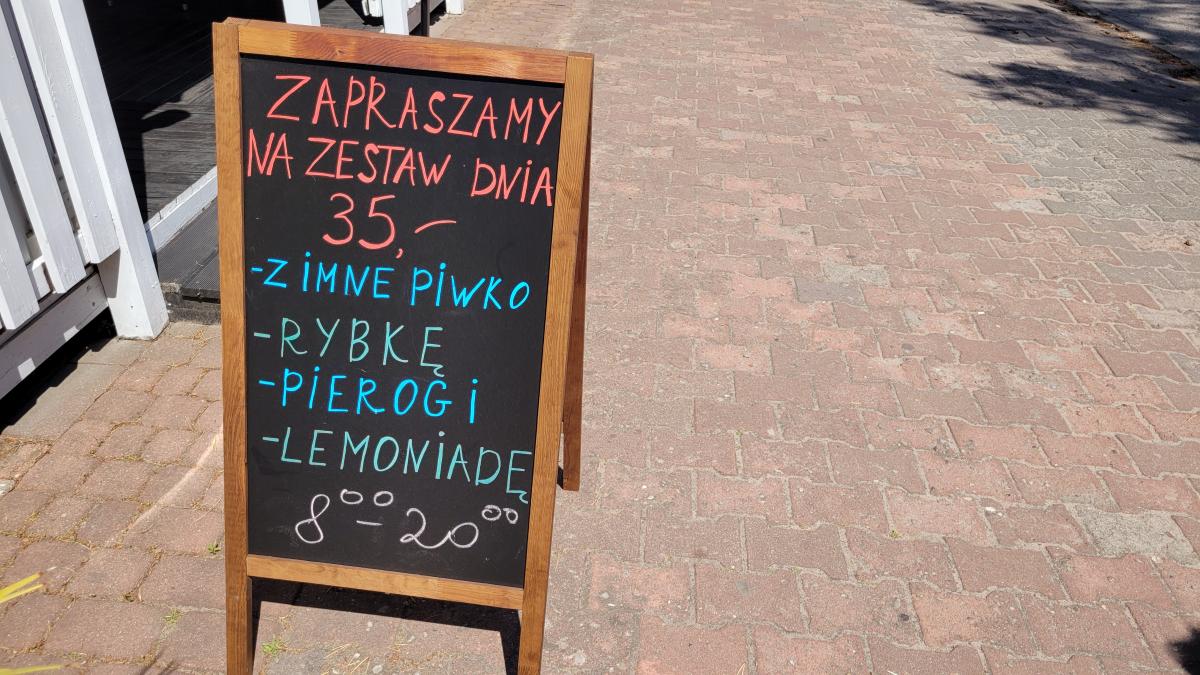 ZAPRASZAMY
NA ZESTAW DNIA
35,-
-ZIMNE PIWKO
-RYBKĘ
-PIEROGI
-LEMONIADĘ
8⁰⁰-20⁰⁰